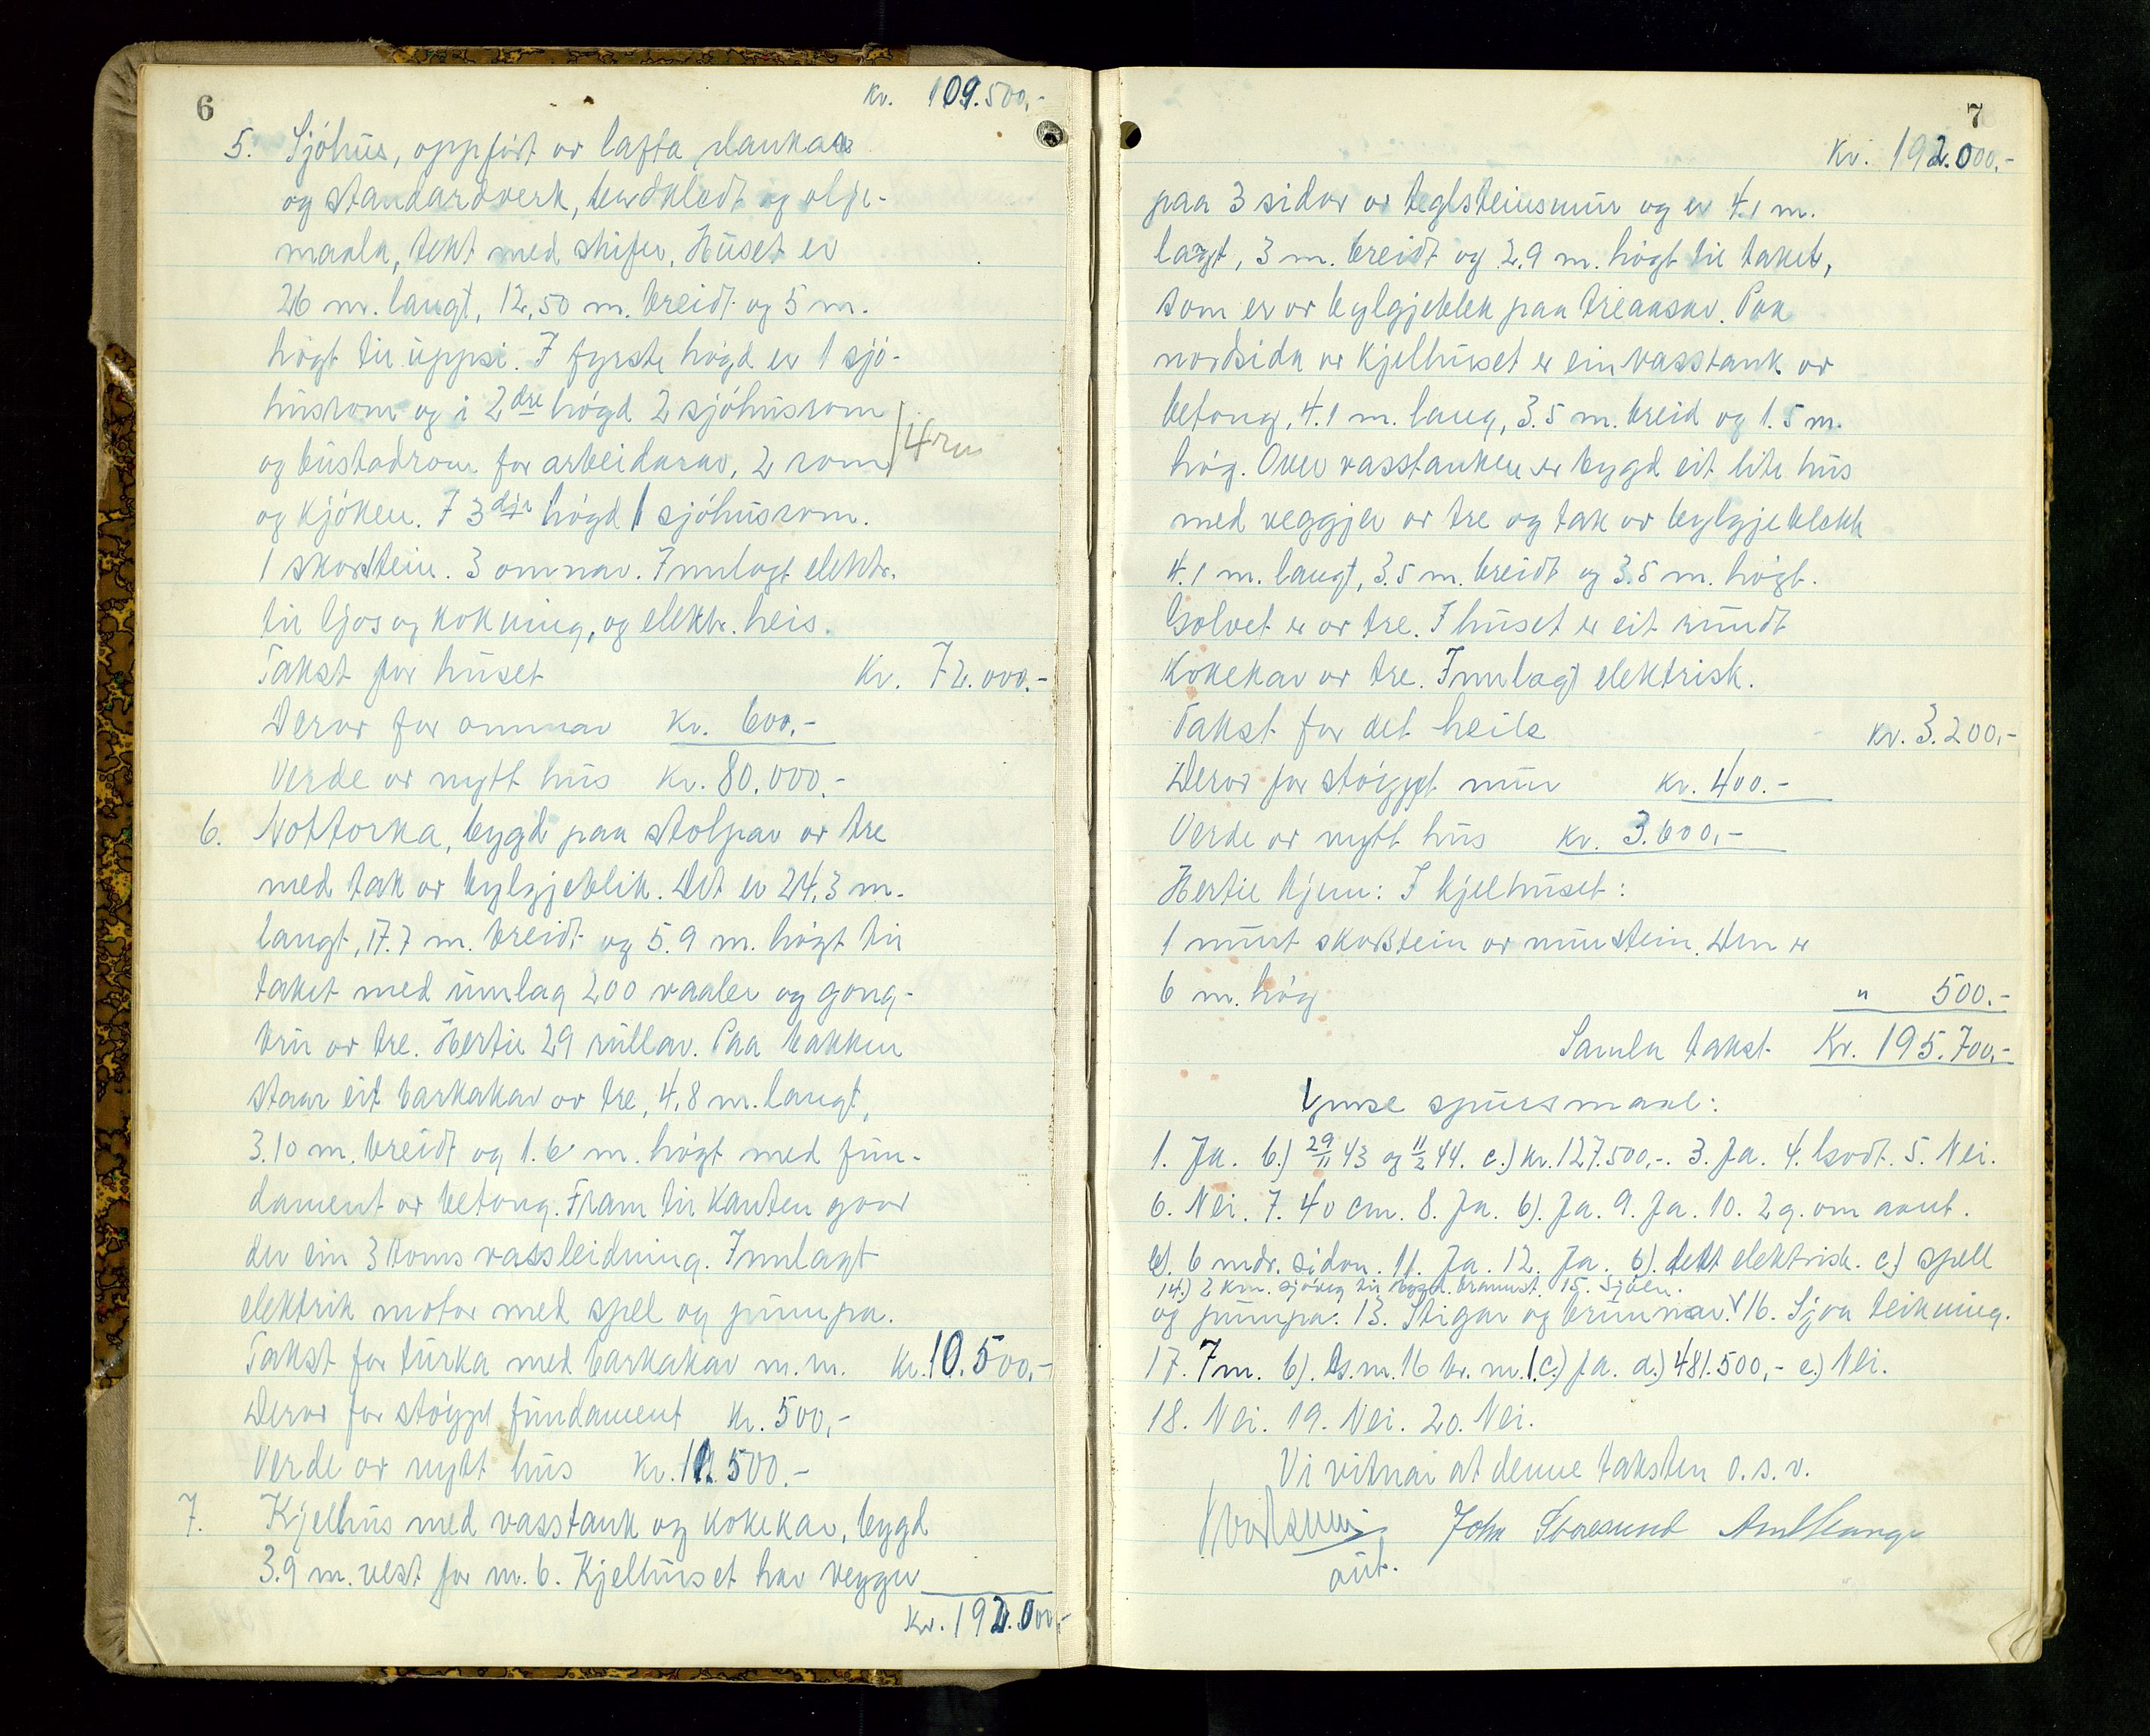 6
Kr. 109.500,-
5. Sjóhus, oppført av lafta plankar
og standardverk, bordkledt og olje-
maala, tekt med skifer. Huset er
26 m. langt, 12,50 m. breidt og 5 m.
høgt til uppsi. I fyrste høgd er 1 sjó-
husrom og i 2dre høgd 2 sjóhusrom
og bustadrom for arbeidarar, 2 rom /4 rm
og kjóken. I 3dje høgd 1 sjóhusrom.
1 skorstein. 3 omnar. Innlagt elektr.
til ljos og kokning, og elektr. heis.
Takst for huset Kr. 72.000.-
Derav for omnar Kr. 600,-
Verde av nytt hus Kr. 80.000.-
6. Nottorka, bygd paa stolpar av tre
med tak av bylgjeblik. Det er 24,3 m.
langt, 17.7 m. breidt og 5.9 m. høgt til
taket med umlag 200 vaaler og gong-
bru av tre. Hertil 29 rullar. Paa bakken
staar eit barkakar av tre, 4,8 m. langt,
3.10 m. breidt og 1.6 m. høgt med fun-
dament av betong. Fram til kanten gaar
der ein 3 toms vassleidning. Innlagt
elektrik motor med spel og pumpa.
Takst for turka med barkakar m.m. Kr. 10.500,-
Derav for støypt fundament Kr. 500,-
Verde av nytt hus Kr. 12.500.-
7. Kjelhus med vasstank og kokekar, bygd
3.9 m. vest for nr. 6. Kjelhuset har vegger
Kr. 192.000,-
7
Kr. 192.000,-
paa 3 sidor av teglsteinsmur og er 4.1 m.
langt, 3 m. breidt og 2.9 m. høgt til taket,
som er av bylgjeblek paa treaasar. Paa
nordsida av kjelhuset er ein vasstank av
betong, 4.1 m. lang, 3.5 m. breid og 1.5 m.
høg. Over vasstanken er bygd eit lite hus
med veggjer av tre og tak av bylgjeblekk
4.1 m. langt, 3.5 m. breidt og 3.5 m. høgt.
Golvet er av tre. I huset er eit rundt
kokekar av tre. Innlagt elektrisk.
Takst for det heile Kr. 3.200,-
Derav for støypt mur Kr. 400.-
Verde av nytt hus Kr. 3.600,-
Hertil kjem: I kjelhuset:
1 murt skorstein av murstein. Den er
6 m. høg " 500.-
Samla takst Kr. 195.700,-
Ymse spursmaal:
1. Ja. b.) 29/11 43 og 11/2 44. c.) Kr. 127.500,-. 3. Ja. 4. Godt. 5. Nei.
6. Nei. 7. 40 cm. 8. Ja. b). Ja. 9. Ja. 10. 2 g. om aaret.
b). 6 mdr. sidan. 11. Ja. 12. Ja. b). tekt elektrisk. c.) spell
14.) 2 km. sjóveg til bygd. brannst. 15. Sjóen.
og pumpa. 13. Stigar og brunnar. 16. Sjaa teikning.
17. 7 m. b). G.m. 16 br. m. 1. c.) Ja. d.) 481.500,- e.) Nei.
18. Nei. 19. Nei. 20. Nei.
Vi vitnar at denne taksten o.s.v.
John Storesund
aut.